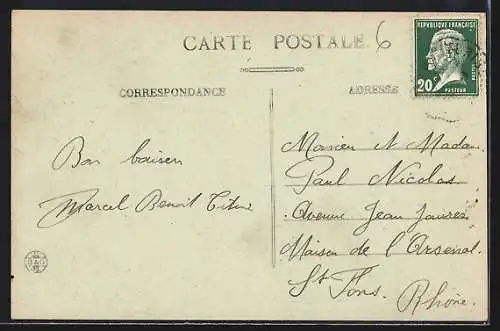 CARTE POSTALE
6
RÉPUBLIQUE FRANÇAISE
20c
PASTEUR
POSTES
CORRESPONDANCE
ADRESSE
Bon baiser
Marcel Benoit
Monsieur et Madame
Paul Nicolas
Avenue Jean Jaurès
Maison de l'Arsenal
St Fons.
Rhône.